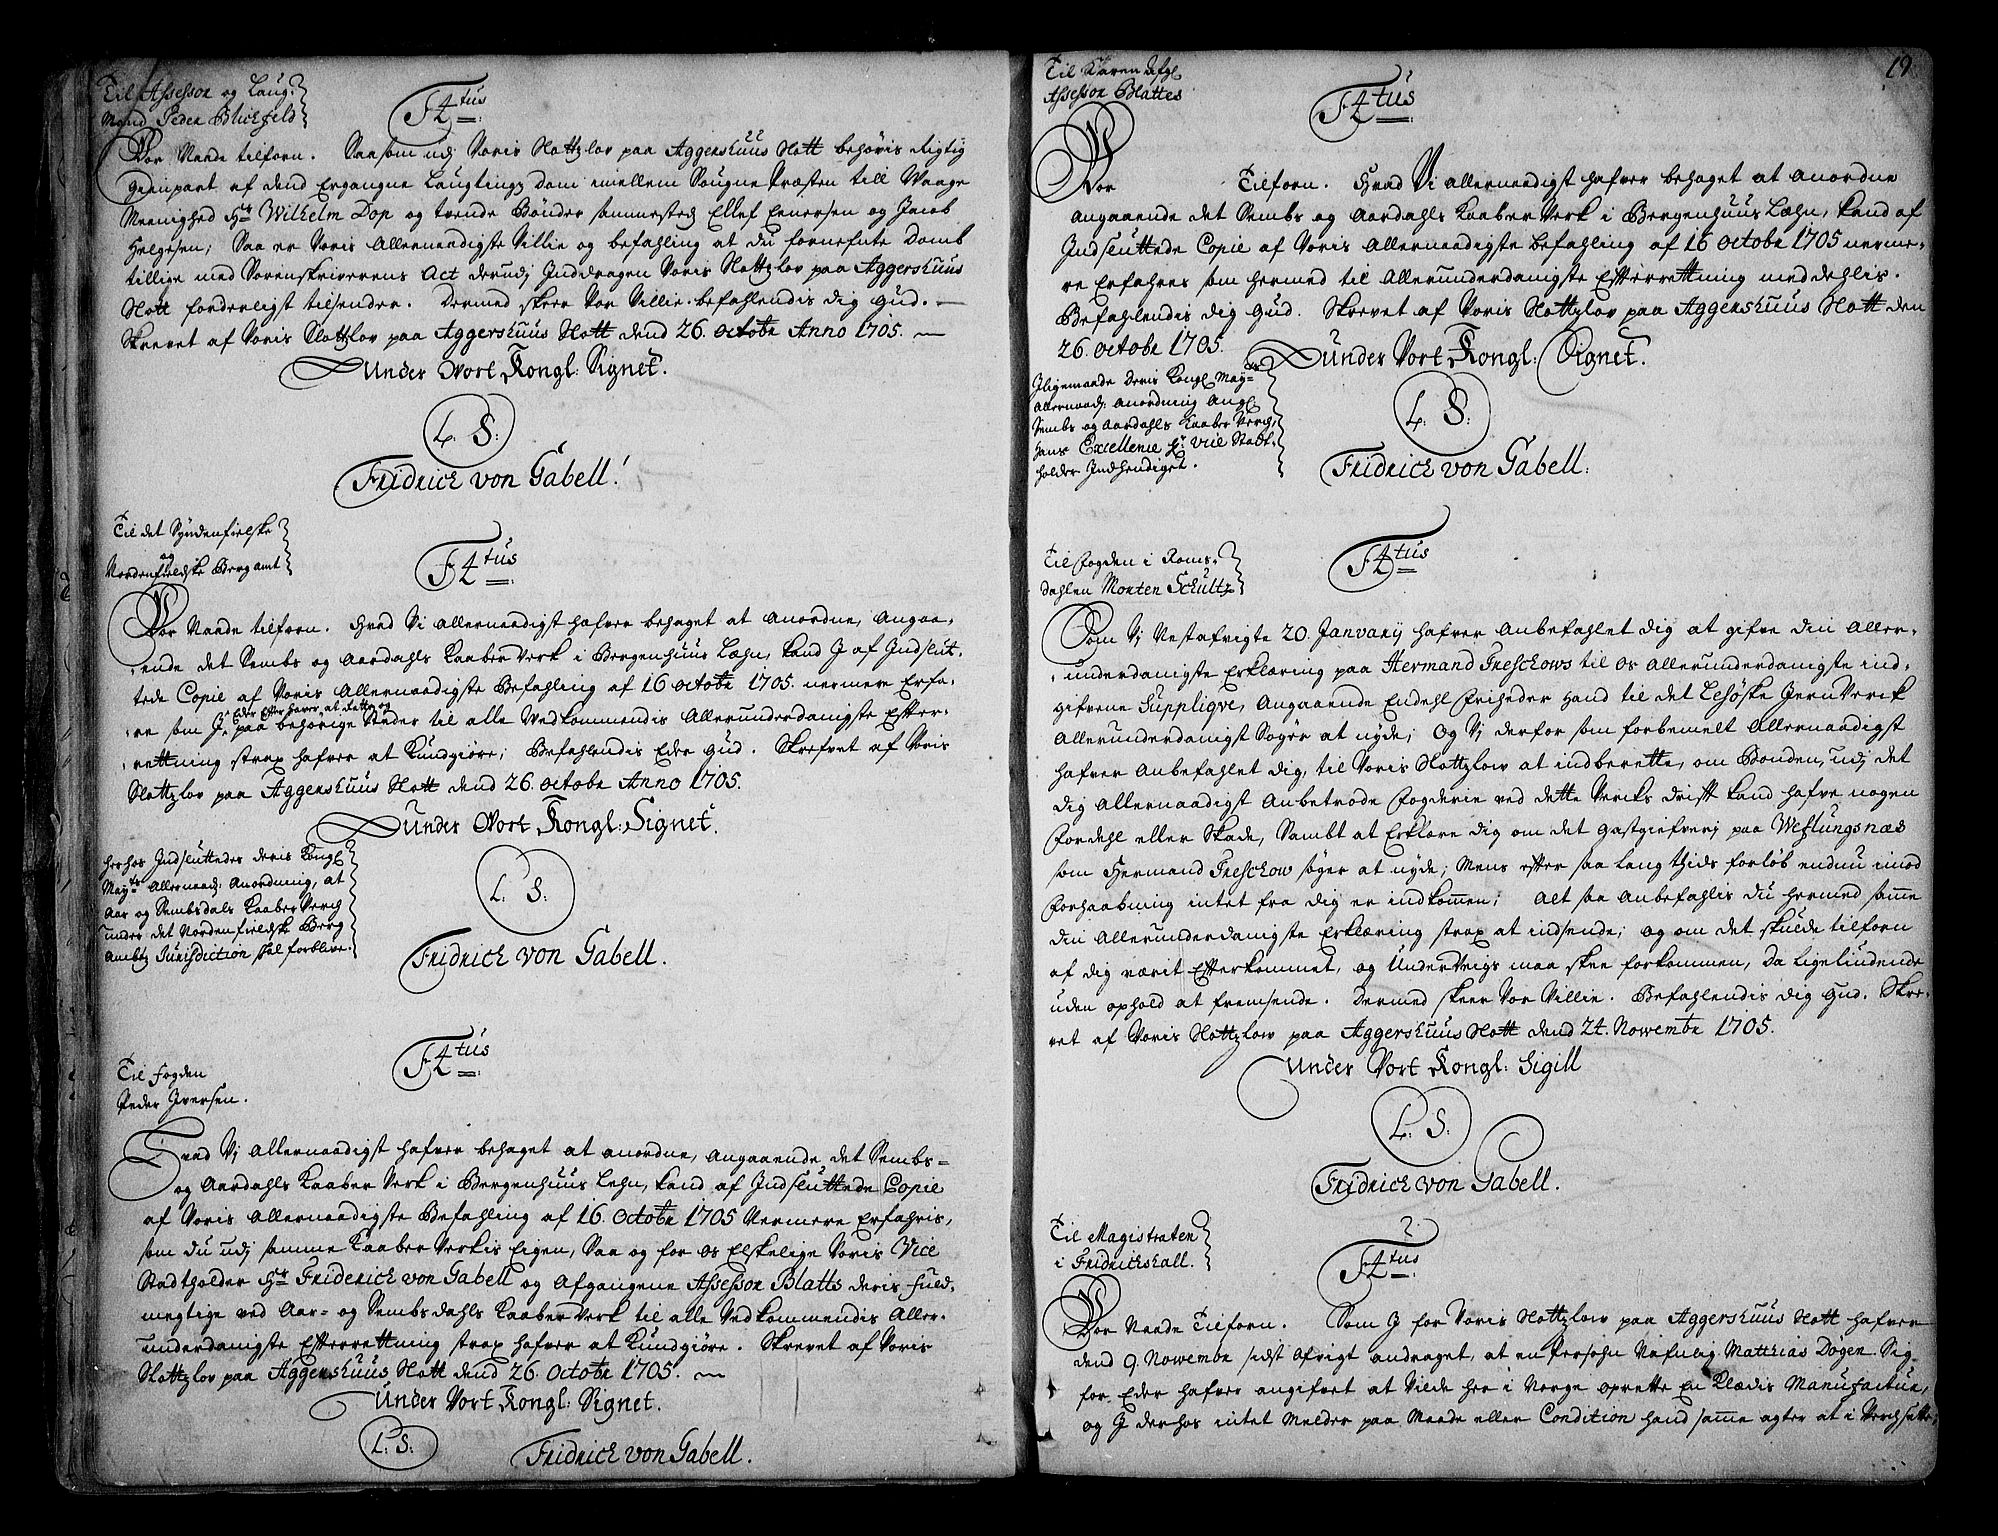 Til Assessor og Laug-
Mand Peder Blichfeld
F4tus
Vor Naade tilforn. Saasom udj Voris Slotzlov paa Aggershuus Slott behøvis Rigtig
Gienpart af dend Ergangne Laugtings Dom imellem Sougne Præsten till Waage
Meenighed Hr Wilhelm Dop og trende Bønder sammested Ellef Enersen og Jacob
Helgesen; Saa er Voris Allernaadigste Villie og befahling at du fornefnte Domb
tillige med Sorenskriverens Act derudj Inddragen Voris Slottzlov paa Aggershuus
Slott forderligst tilsender. Dermed skeer Vor Villie. befahlendis dig Gud. —
Skrevet af Voris Slottzlov paa Aggershuus Slott dend 26. octobr Anno 1705. —
Under Vort Kongl: Signet.
L. S:
Fridrich von Gabell.
Til det Syndenfielske
og
Nordenfieldske Bergamt
F4tus
Vor Naade tilforn. Hvad Vi allernaadigst hafver behaget at Anordne, Angaa-
ende det Sembs og Aardahls Kaaber Verk i Bergenhuus Læhn, kand J af Indslut-
tede Copie af Voris Allernaadigste Befahling af 16 octobr 1705. nermere Erfa-
re som J, Eder Efter haver at Rette og
paa behørige Steder til alle Vedkommendis Allerunderdanigste Efter-
rettning strax hafver at Kundgiøre; Befahlendis Eder Gud. Skrefvet af Voris
Slottzlov paa Aggershuus Slott dend 26. octobr Anno 1705.
Under Vort Kongl: Signet.
herhos Indsluttedes deris Kongl
Mayts Allernaad: Anordning, at
Aar og Sembsdals Kaaber Verch
under det Nordenfieldske Berg
Ambtz Jurisdiction skal forblive.
L. S.
Fridrich von Gabell.
Til fogden
Peder Iversen.
F4tus
Hvad Vj Allernaadigst hafver behaget at anordne, angaaende det Sembs-
og Aardahls Kaaber Verk i Bergenhuus Lehn, kand af Indsluttede Copie
af Voris Allernaadigste Befahling af 16. octobr 1705 Nermere Erfahris,
som du udj samme Kaaber Verkis Eigen, Saa og for os Elskelige Voris Vice
Stadtholder Hr Friderich von Gabell og Afgangene Assessor Blatts deris fuld-
megtige ved Aar- og Sembsdahls Kaaber Verk til alle Vedkommendis Aller-
underdanigste Efterrettning strax hafver at Kundgiøre. Skrevet af Voris
Slottzlov paa Aggershuus Slott dend 26. octobr 1705. —
Under Vort Kongl: Signet.
L. S:
Fridrich von Gabell.
19
Til Karen Afgl
Assessor Blattes
F4tus
Vor Tilforn. Hvad Vi Allernaadigst hafver behaget at Anordne
Angaaende det Sembs og Aardahls Kaaber Verk i Bergenhuus Læhn, kand af
Indsluttede Copie af Voris Allernaadigste befahling af 16 octobr 1705 nerme-
re Erfahres som hermed til Allerunderdanigste Efterrettning meddehlis.
Befahlendis dig Gud. Skrevet af Voris Slottzlov paa Aggershuus Slott den
26. octobr 1705.
Under Vort Kongl: Signet.
Jligemaade Deris Kongl Mayts
Allernaad: anordning Angl
Sembs og Aardahls Kaaber Verch,
hans Excellence Hr Vice Stadt-
holder Indhendiget.
L. S:
Fridrich von Gabell:
Til fogden i Roms-
dahlen Morten Schultz
F4tus
Som Vj Nestafvigte 20. Janvarij hafver Anbefahlet dig at gifve din Aller-
underdanigste Erklæring paa Hermand Treschows til os Allerunderdanigste ind-
gifvene Suppliqve, Angaaende Endehl friheder hand til det Lesøske Jern Verck
Allerunderdanigst Søger at nyde; Og Vj derfor som forbemelt Allernaadigst
hafver Anbefahlet dig, til Voris Slottzlow at indberette, om Bonden, udj det
dig Allernaadigst Anbetrode fogderie ved dette Vercks drift kand hafve nogen
fordehl eller Skade, Sambt at Erklære dig om det gastgiefverj paa Weslungsnæs
som Hermand Treschow søger at nyde; Mens efter saa lang thids forløb endnu imod
forhaabning intet fra dig er indkommen; Alt saa Anbefahlis du hermed samme
din Allerunderdanigste Erklæring strax at indsende; og om det skulde tilforn
af dig værit Efterkommet, og Underveigs maa skee forkommen, da Ligelindende
uden ophold at fremsende. Dermed skeer Vor Villie. Befahlendis dig Gud. Skre-
vet af Voris Slottzlow paa Aggershuus Slott dend 24. Novembr 1705.
Under Vort Kongl: Sigill
L. S.
Fridrich von Gabell.
Til Magistraten
i Fridrichshall.
F4tus
Vor Naade Tilforn. Som J for Voris Slottzlow paa Aggershuus Slott hafver
dend 9. Novembr sidst Afvigt andraget, at en Persohn Nafnlig Matthias Døgen Sig
for Eder hafver angifvet at Vilde her i Norge oprette En Klædis Manufactur,
og J derhos intet Melder paa Maade eller Condition hand samme agter at i Verchsette,